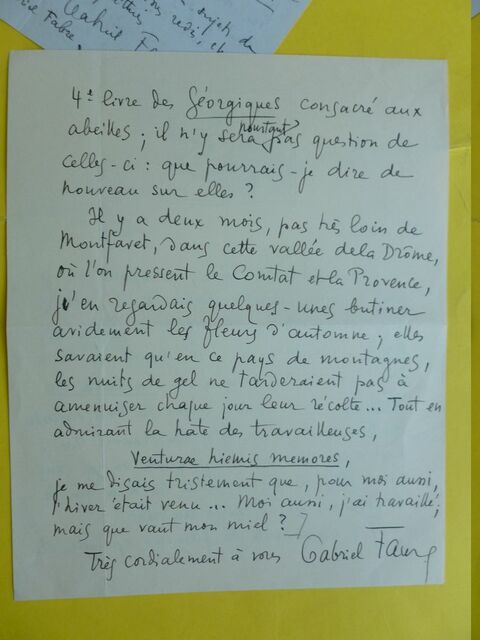 sujets du
redis, ch
Gabriel Fa
Fabre
4e livre des Géorgiques consacré aux
abeilles ; il n'y sera pourtant pas question de
celles-ci : que pourrais-je dire de
nouveau sur elles ?
Il y a deux mois, pas très loin de
Montfavet, dans cette vallée de la Drôme,
où l'on pressent le Comtat et la Provence,
j'en regardais quelques-unes butiner
avidement les fleurs d'automne ; elles
savaient qu'en ce pays de montagnes,
les nuits de gel ne tarderaient pas à
amenuiser chaque jour leur récolte... Tout en
admirant la hate des travailleuses,
Venturae hiemis memores,
je me disais tristement que, pour moi aussi,
l'hiver était venu... Moi aussi, j'ai travaillé ;
mais que vaut mon miel ?]
Très cordialement à vous Gabriel Faure